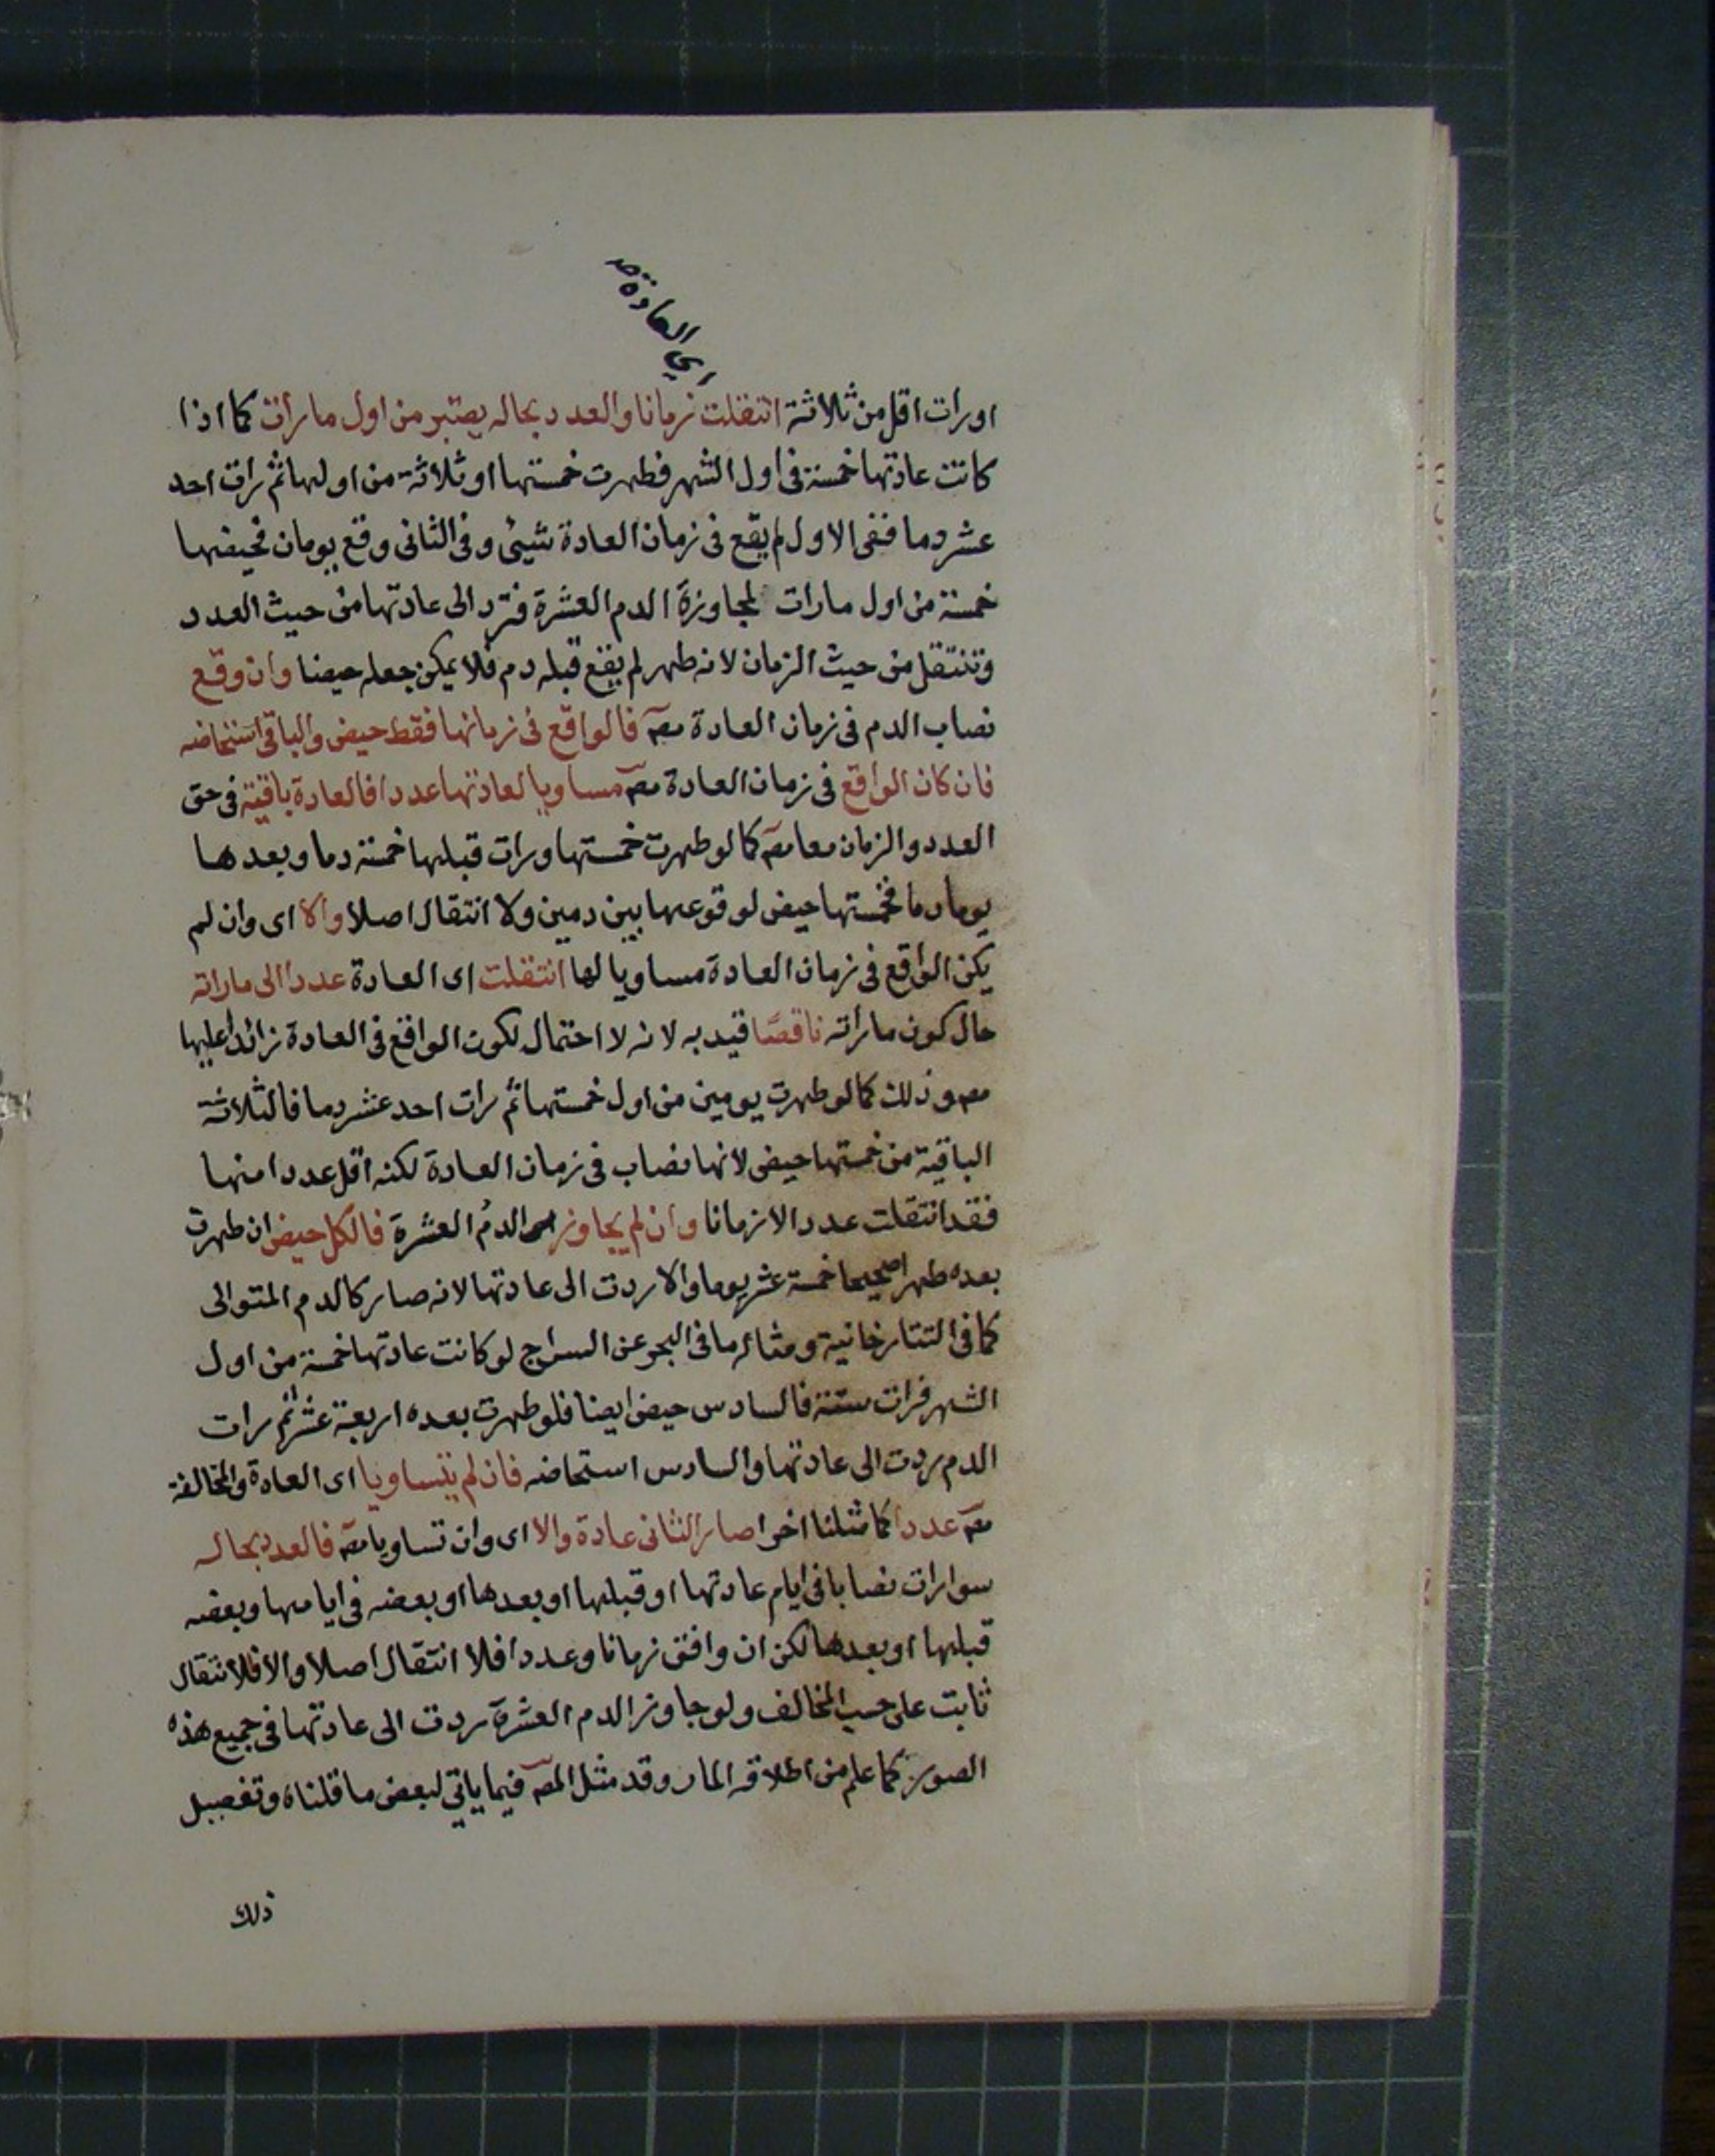 اي العادة صح
اورات اقل من ثلاثة انتقلت زمانا والعدد بحاله يعتبر من اول مارأت كما اذا
كانت عادتها خمسة فى اول الشهر فطهرت خمستها او ثلاثة من اولها ثم رات احد
عشر دما ففى الاول لم يقع فى زمان العادة شيئ وفى الثانى وقع يومان فحيضها
خمسة من اول مارات لمجاوزة الدم العشرة فترد الى عادتها من حيث العدد
وتنتقل من حيث الزمان لانه طهر لم يقع قبله دم فلا يمكن جعله حيضا وان وقع
نصاب الدم فى زمان العادة مصـ فالواقع فى زمانها فقط حيض والباقى استحاضه
فان كان الواقع فى زمان العادة مصـ مساويا لعادتها عددا فالعادة باقية فى حق
العدد والزمان معا مصـ كما لو طهرت خمستها ورات قبلها خمسة دما وبعدها
يوما دما فخمستها حيض لوقوعها بين دمين ولا انتقال اصلا والا اى وان لم
يكن الواقع فى زمان العادة مساويا لها انتقلت اى العادة عددا الى ماراته
حال كون مارأته ناقصًا قيد به لانه لا احتمال لكون الواقع فى العادة زائدا عليها
مصـ وذلك كما لو طهرت يومين من اول خمستها ثم رات احد عشر دما فالثلاثة
الباقية من خمستها حيض لانها نصاب فى زمان العادة لكنه اقل عددا منها
فقد انتقلت عددا لا زمانا وان لم يجاوز اى الدم العشرة فالكل حيض ان طهرت
بعده طهرا صحيحا خمسة عشر يوما والا ردت الى عادتها لانه صار كالدم المتوالى
كما فى التتارخانية ومثاله ما فى البحر عن السراج لو كانت عادتها خمسة من اول
الشهر فرات ستة فالسادس حيض ايضا فلو طهرت بعده اربعة عشر ثم رات
الدم ردت الى عادتها والسادس استحاضه فان لم يتساويا اى العادة والمخالفة
مصـ عددا كما مثلنا اخرا صار الثانى عادة والا اى وان تساويا مصـ فالعدد بحاله
سوا رات نصابا فى ايام عادتها او قبلها او بعدها او بعضه فى ايامها وبعضه
قبلها او بعدها لكن ان وافق زمانا وعددا فلا انتقال اصلا والا فالانتقال
ثابت على حسب المخالف ولو جاوز الدم العشرة ردت الى عادتها فى جميع هذه
الصور كما علم من اطلاقه المار وقد مثل المصـ فيما ياتي لبعض ما قلناه وتفصيل
ذلك